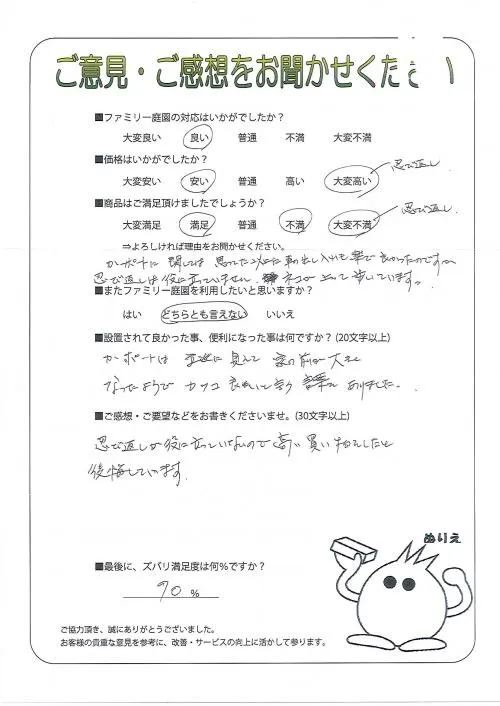 ご意見・ご感想をお聞かせください
■ファミリー庭園の対応はいかがでしたか？
大変良い 良い 普通 不満 大変不満
■価格はいかがでしたか？
忍び返し
大変安い 安い 普通 高い 大変高い
■商品はご満足頂けましたでしょうか？
忍び返し
大変満足 満足 普通 不満 大変不満
⇒よろしければ理由をお聞かせください。
カーポートに関しては思ってた以上に車の出し入れも楽で良かったのですが
忍び返しは役に立っていません。ネコが上って歩いています。
■またファミリー庭園を利用したいと思いますか？
はい どちらとも言えない いいえ
■設置されて良かった事、便利になった事は何ですか？(20文字以上)
カーポートは立派に見えて家の前が大きく
なったようでカッコ良いと言う言葉もありました。
■ご感想・ご要望などをお書きくださいませ。(30文字以上)
忍び返しが役に立っていないので高い買い物をしたと
後悔しています。
ぬりえ
■最後に、ズバリ満足度は何%ですか？
90 %
ご協力頂き、誠にありがとうございました。
お客様の貴重な意見を参考に、改善・サービスの向上に活かして参ります。